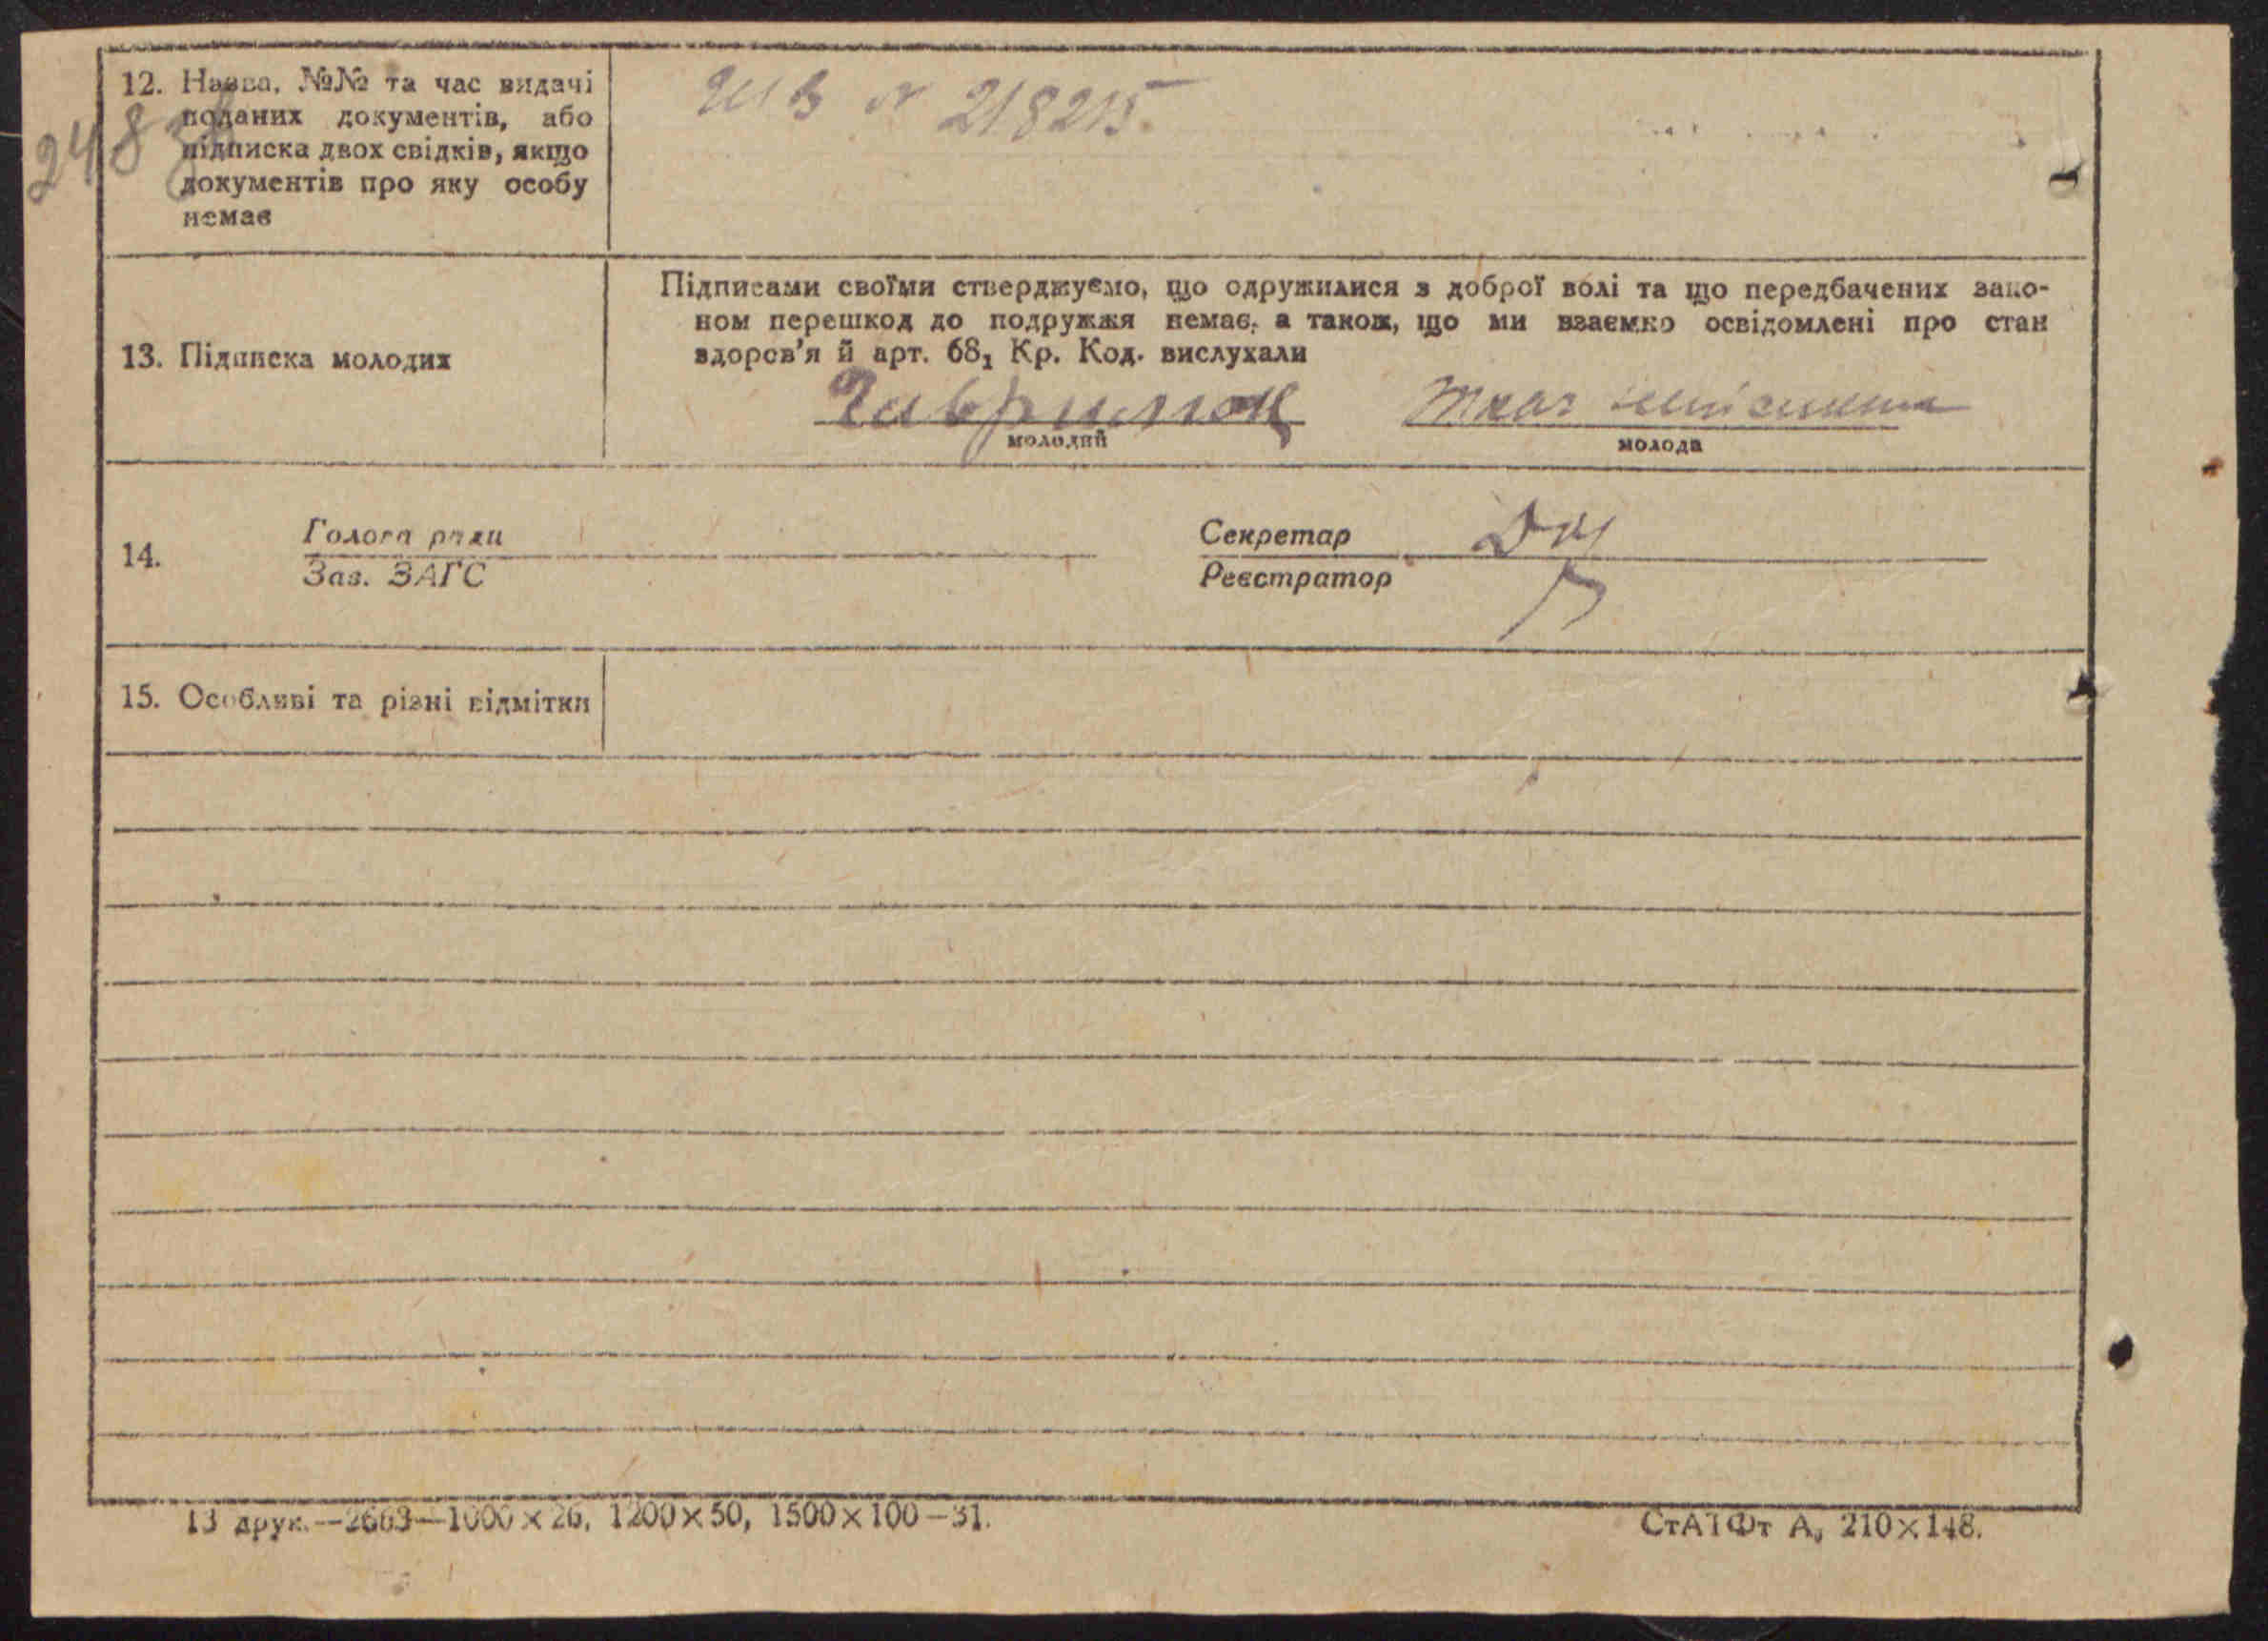 12. Назва, №№ та час видачі
поданих документів, або
підписка двох свідків, якщо
документів про яку особу
немає
248
№ 218215
Підписами своїми стверджуємо, що одружилися з доброї волі та що передбачених зако-
ном перешкод до подружжя немає, а також, що ми взаємно освідомлені про стан
здоров'я й арт. 68₁ Кр. Код. вислухали
13. Підписка молодих
Гаврилюк Ткач
молодий молода
14. Голова ради Секретар
Зав. ЗАГС Реєстратор
15. Особливі та різні відмітки
13 друк.—2663—1000×26, 1200×50, 1500×100—31.
СтАТФт А, 210×148.